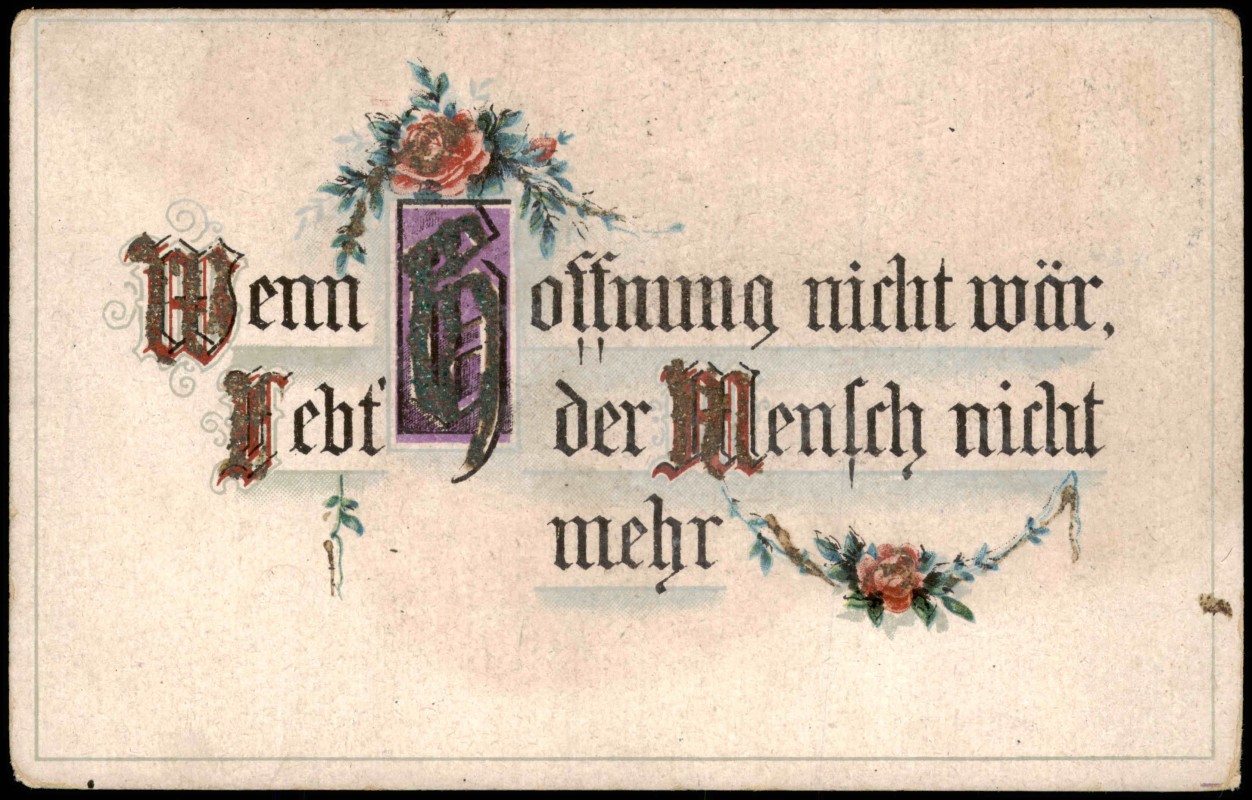 Wenn Hoffnung nicht wär,
Lebt' der Mensch nicht
mehr